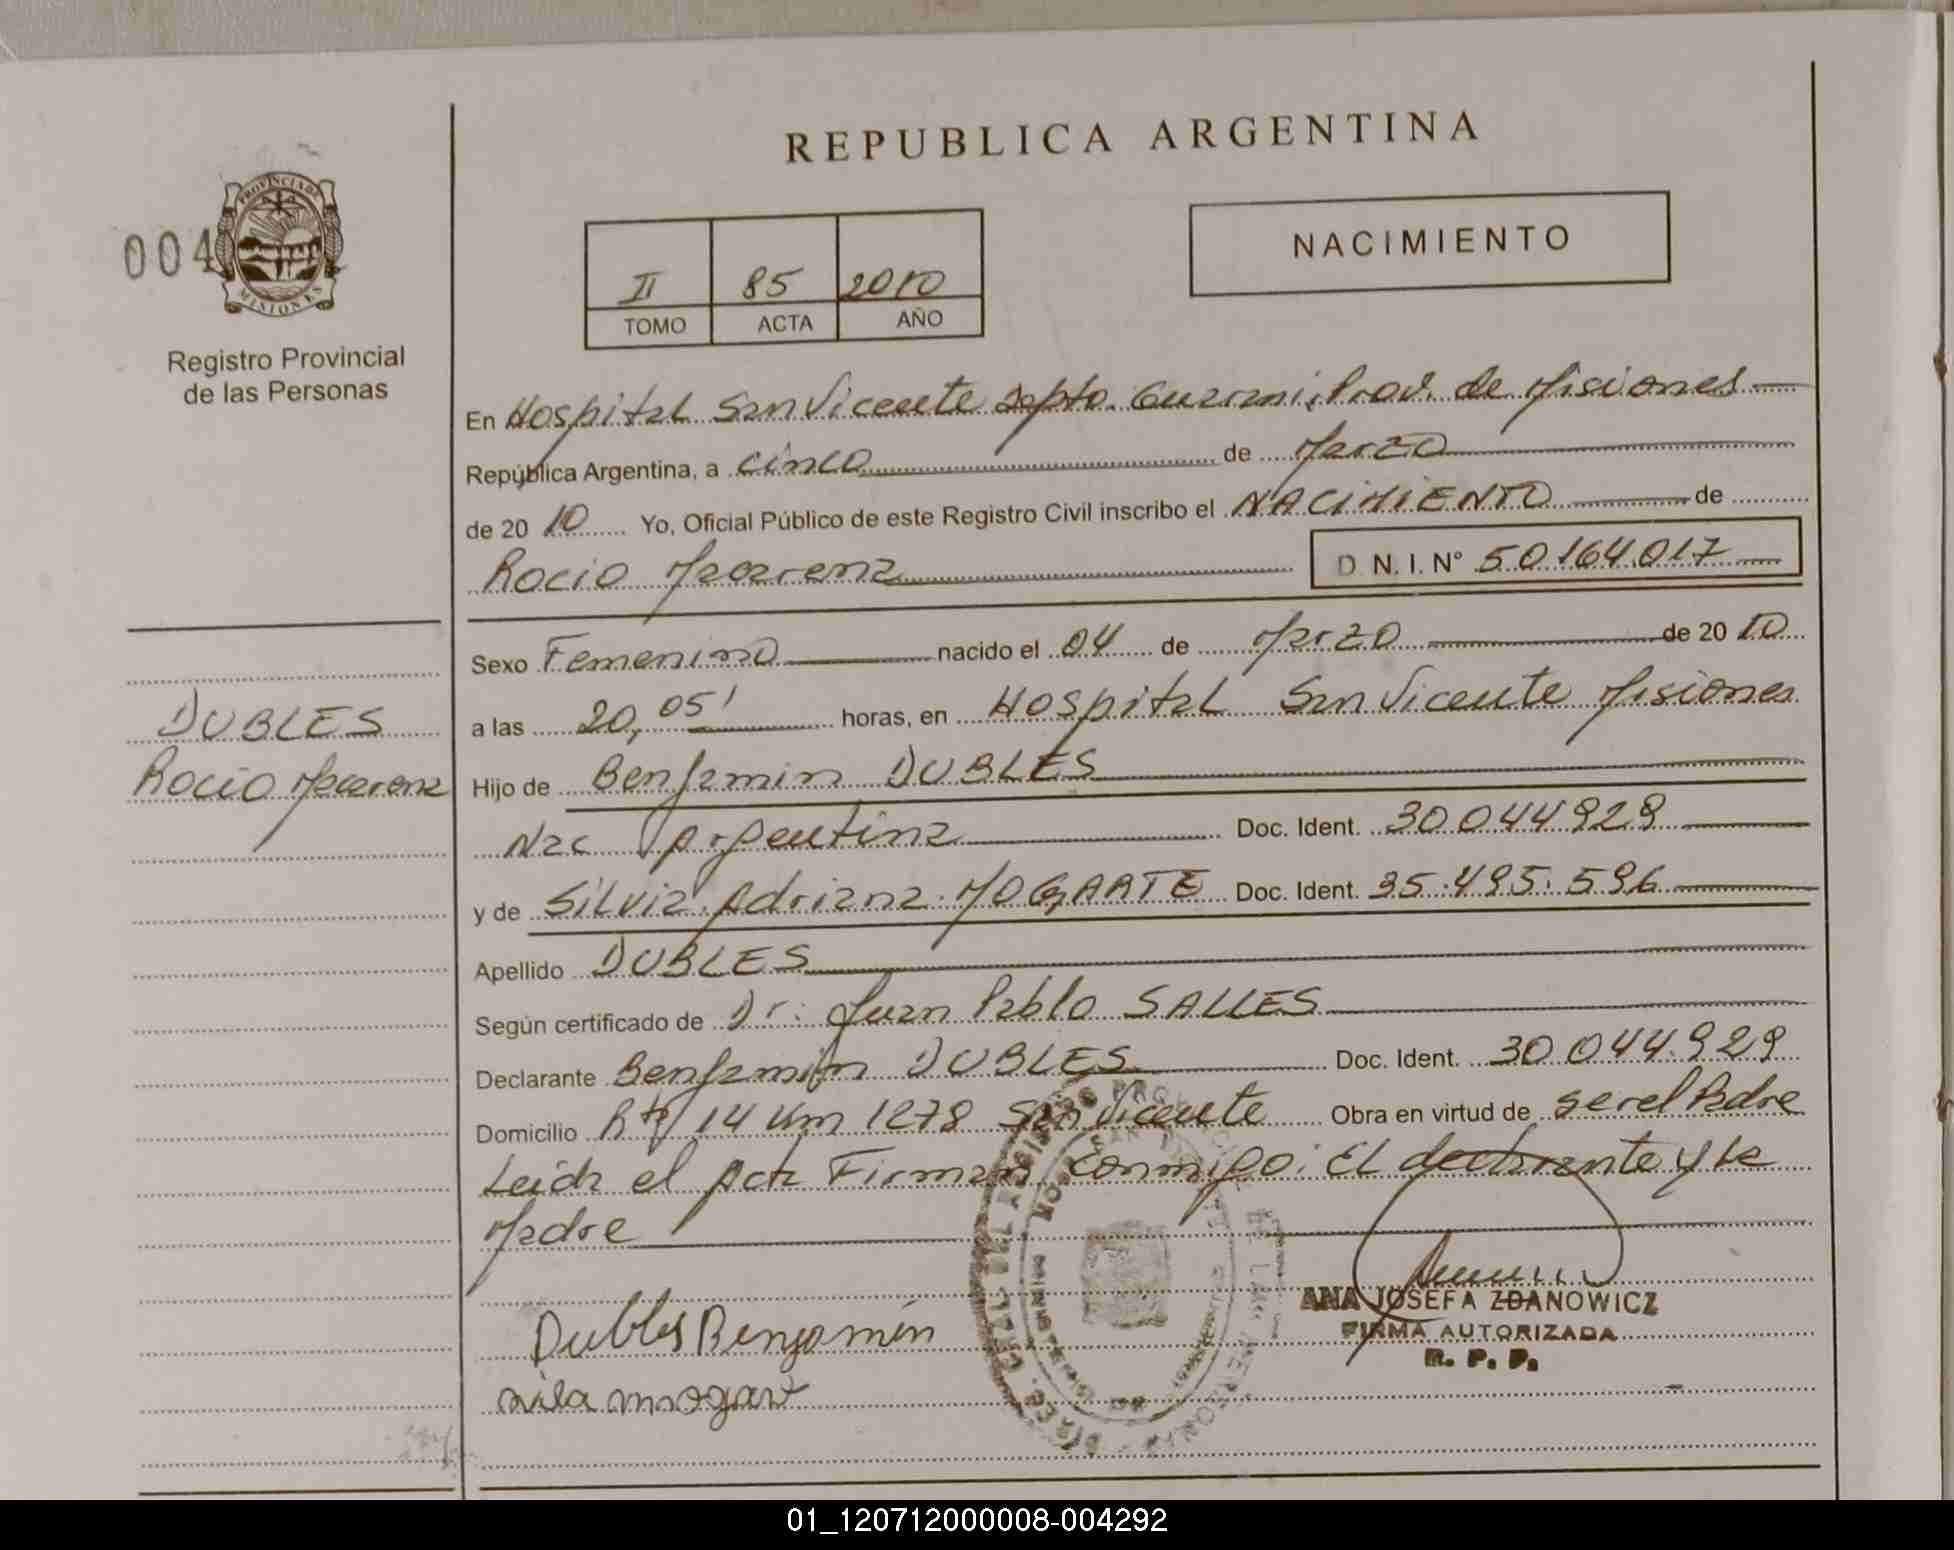 REPUBLICA ARGENTINA
004
PROVINCIA DE
MISIONES
Registro Provincial
de las Personas
II 85 2010
TOMO ACTA AÑO
NACIMIENTO
En Hospital San Vicente Dpto. Guarani, Prov. de Misiones
República Argentina, a cinco de Marzo
de 20 10 Yo, Oficial Público de este Registro Civil inscribo el NACIMIENTO de
Rocio Macarena D.N.I. N° 50164.017
Sexo Femenino nacido el 04 de Marzo de 20 10
a las 20,05' horas, en Hospital San Vicente Misiones
DUBLES
Rocio Macarena
Hijo de Benjamin DUBLES
Nac Argentina Doc. Ident. 30044929
y de Silvia Adriana MOGARTE Doc. Ident. 35.495.596
Apellido DUBLES
Según certificado de Dr: Juan Pablo SALLES
Declarante Benjamin DUBLES Doc. Ident. 30044.929
Domicilio Rta 14 Km 1278 San Vicente Obra en virtud de ser el Padre
Leida el Acta Firman conmigo: El declarante y la
Madre
Dubles Benjamín
ANA JOSEFA ZDANOWICZ
FIRMA AUTORIZADA
R. P. P.
01_120712000008-004292